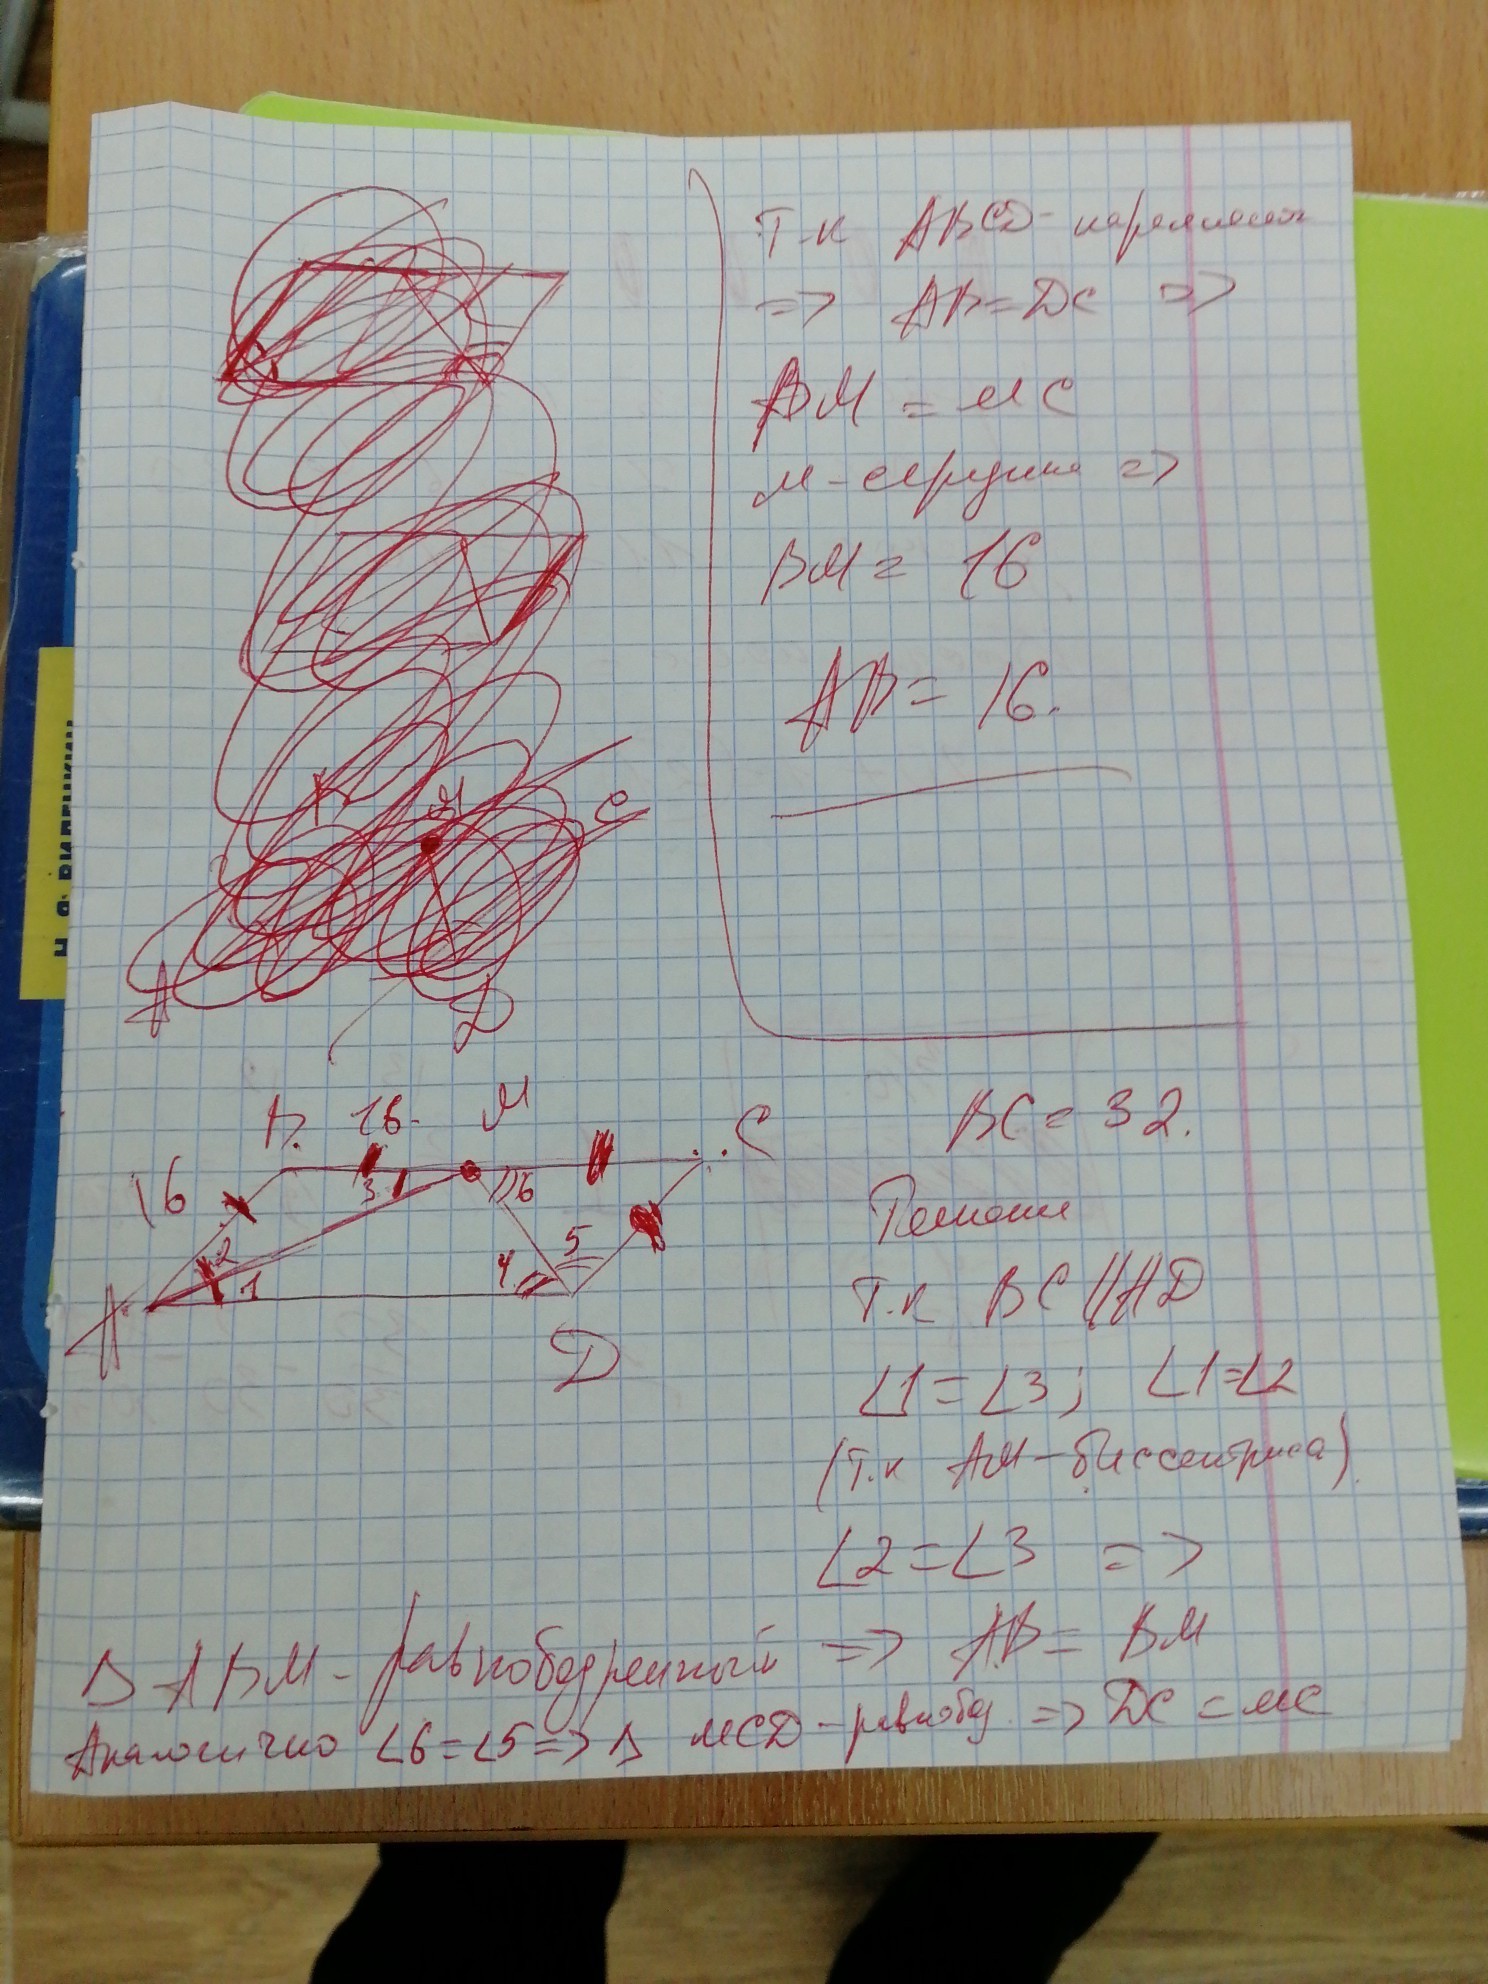 Т.к ABCD - паралелог
=> AB = DC =>
BM = MC
M - середина =>
BM = 16
AB = 16.
M
C
A
D
B. 16. M C
16
3 1 6
2 1 4 5
A D
BC = 32.
Решение
Т.к BC || AD
∠1 = ∠3; ∠1 = ∠2
(Т.к AM - биссектриса).
∠2 = ∠3 =>
Δ ABM - равнобедренный => AB = BM
Аналогично ∠6 = ∠5 => Δ MCD - равнобед. => DC = MC